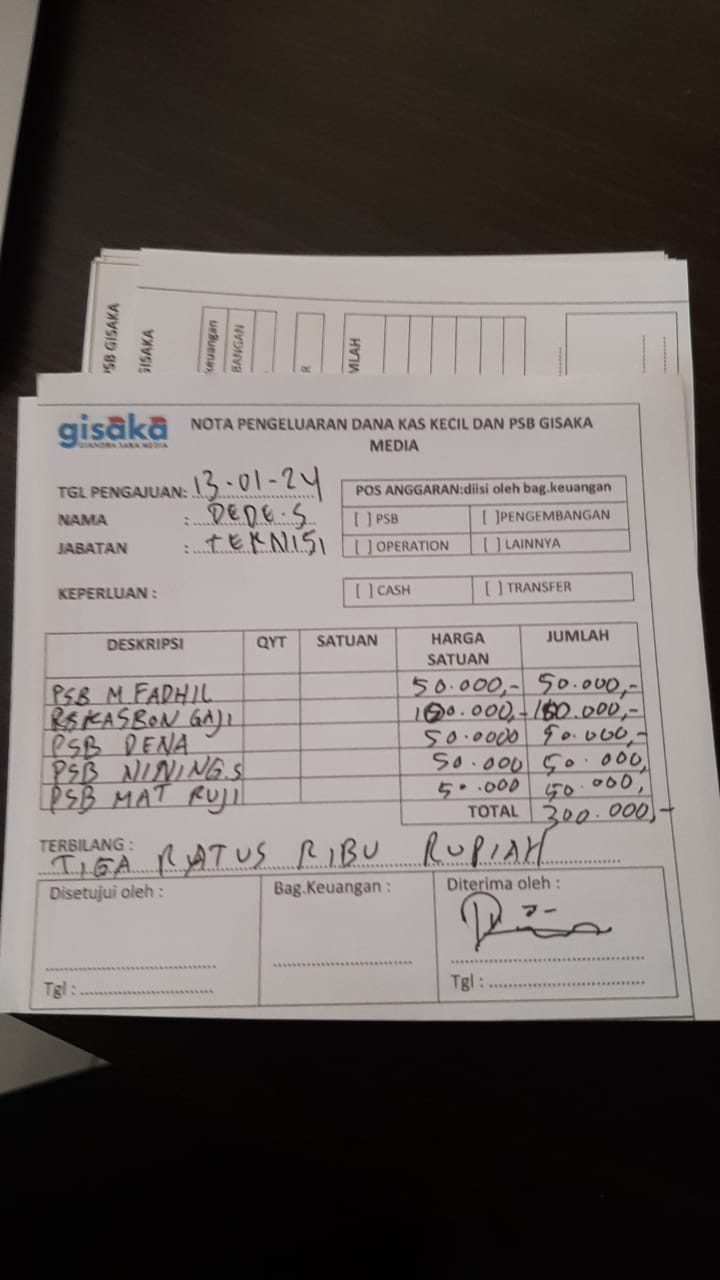 PSB GISAKA
GISAKA
keuangan
BANGAN
R
MLAH
gisaka
GIANDRA SAKA MEDIA
NOTA PENGELUARAN DANA KAS KECIL DAN PSB GISAKA
MEDIA
TGL PENGAJUAN: 13-01-24
NAMA : DEDE.S
JABATAN : TEKNISI
POS ANGGARAN:diisi oleh bag.keuangan
[ ] PSB [ ]PENGEMBANGAN
[ ] OPERATION [ ] LAINNYA
KEPERLUAN :
[ ] CASH [ ] TRANSFER
DESKRIPSI QYT SATUAN HARGA SATUAN JUMLAH
PSB M FADHIL 50.000,- 50.000,-
KASBON GAJI 100.000,- 100.000,-
PSB DENA 50.0000 50.000,-
PSB NINING.S 50.000 50.000,
PSB MAT RUJI 50.000 50.000,
TOTAL 300.000,-
TERBILANG :
TIGA RATUS RIBU RUPIAH
Disetujui oleh : Bag.Keuangan : Diterima oleh :
Tgl : Tgl :